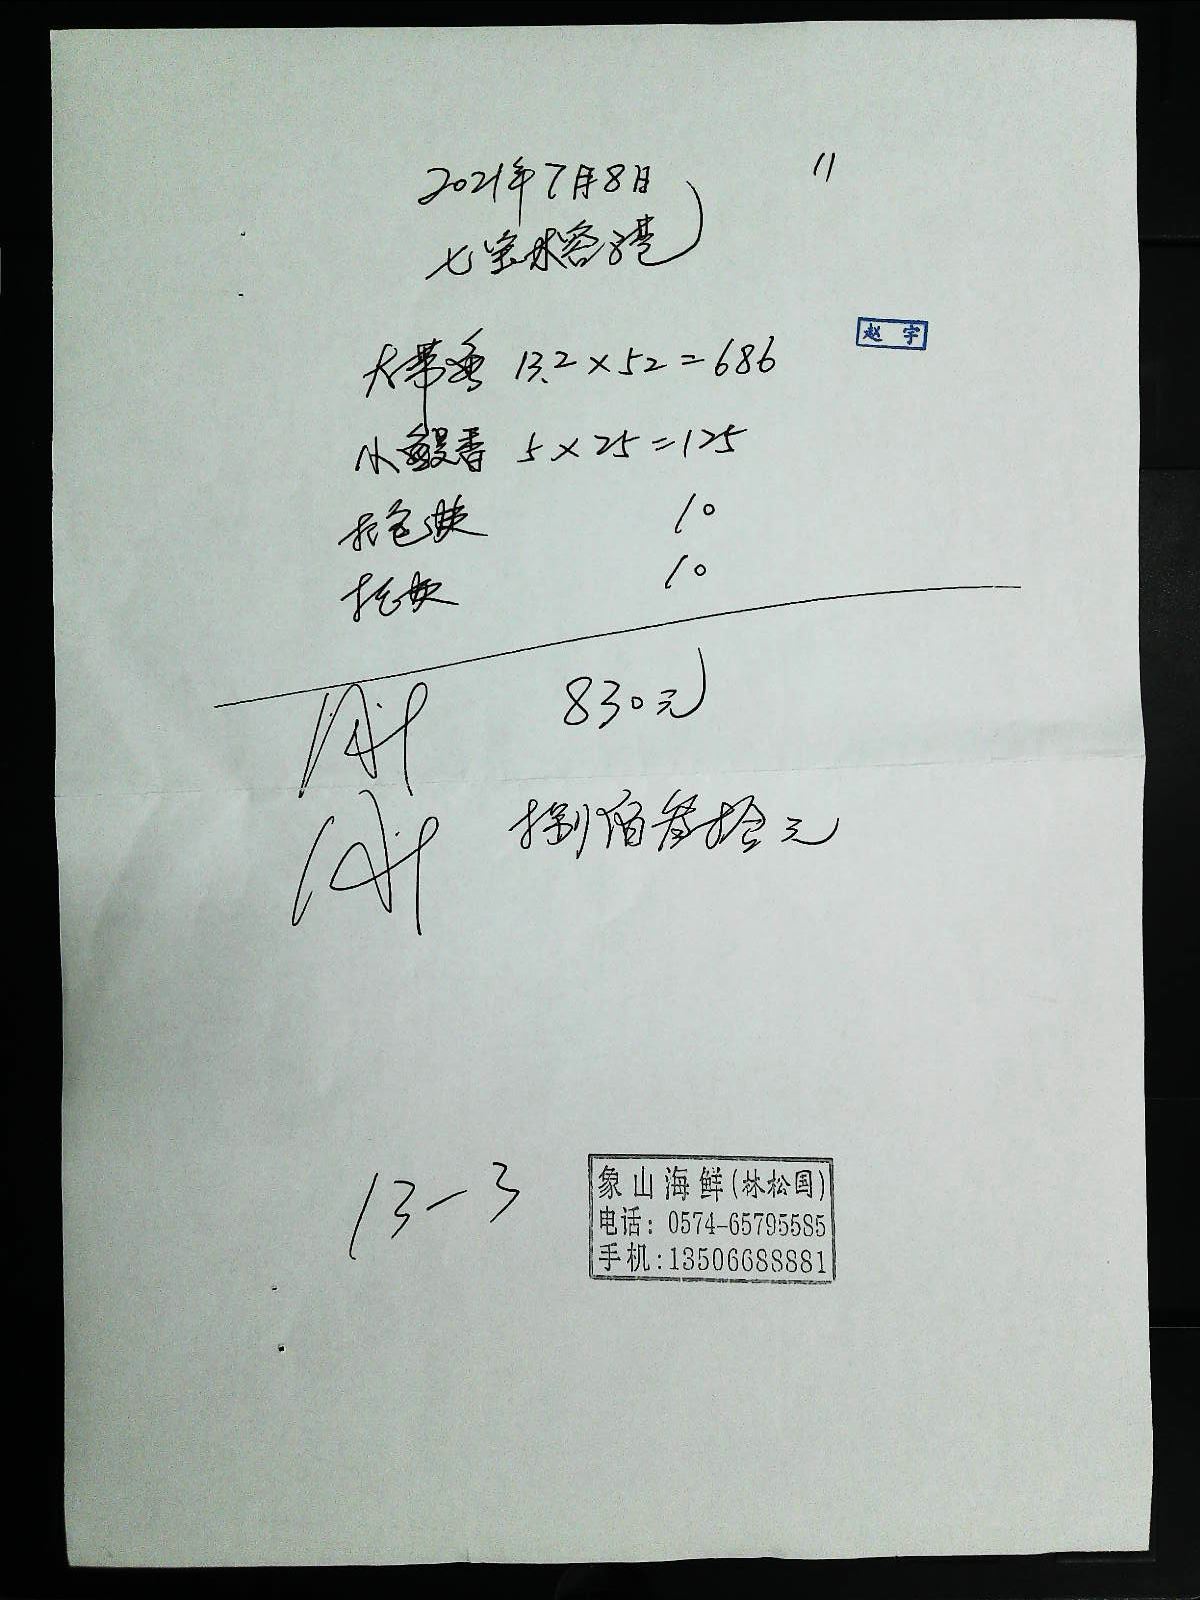 2021年7月8日
11
七宝林客港
赵宇
大带鱼 13.2×52=686
小鳗香 5×25=125
打包费 10
托费 10
830元
捌佰叁拾元
13-3
象山海鲜(林松国)
电话: 0574-65795585
手机:13506688881